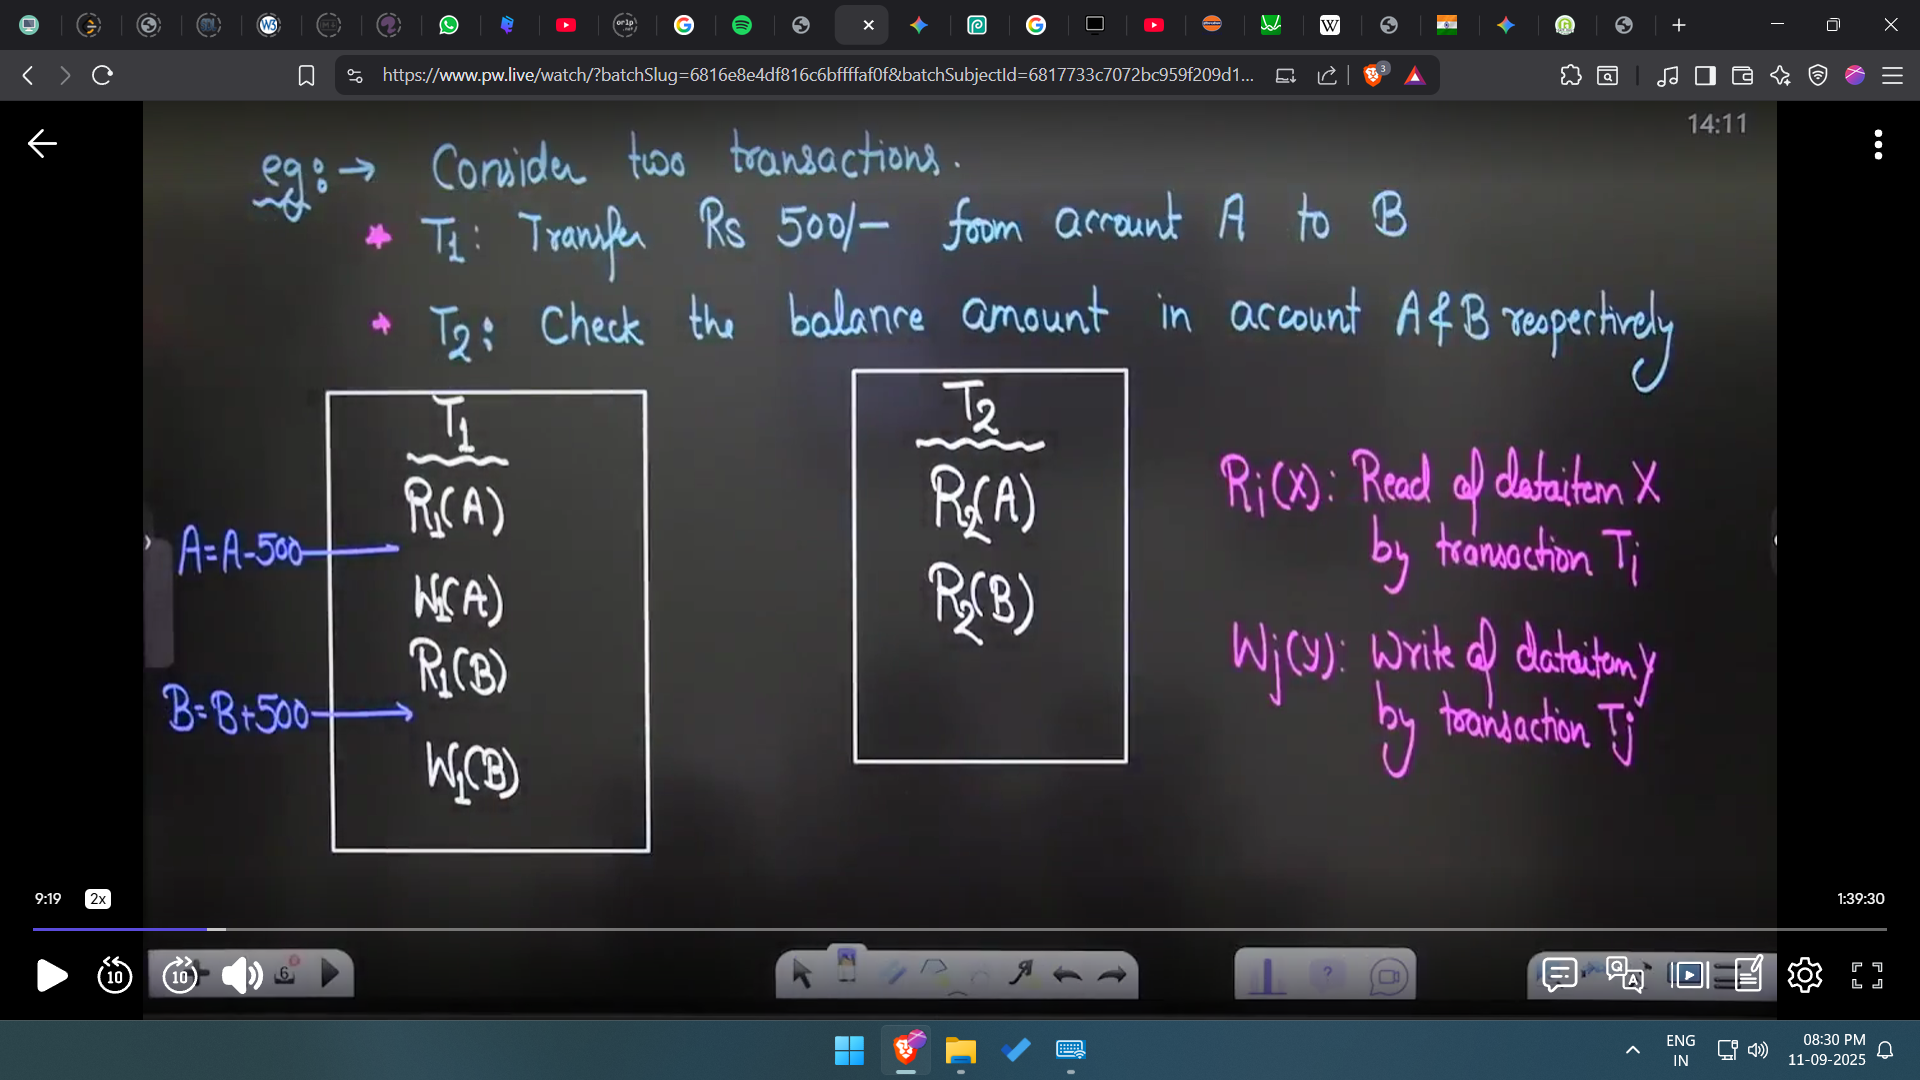 https://www.pw.live/watch/?batchSlug=6816e8e4df816c6bffffaf0f&batchSubjectId=6817733c7072bc959f209d1...
3
14:11
eg:→ Consider two transactions.
* T1: Transfer Rs 500/- from account A to B
* T2: Check the balance amount in account A & B respectively
T1
R1(A)
A=A-500
W1(A)
R1(B)
B=B+500
W1(B)
T2
R2(A)
R2(B)
Ri(X): Read of dataitem X
by transaction Ti
Wj(y): Write of dataitem y
by transaction Tj
9:19 2x 1:39:30
10 10 6
ENG
IN
08:30 PM
11-09-2025